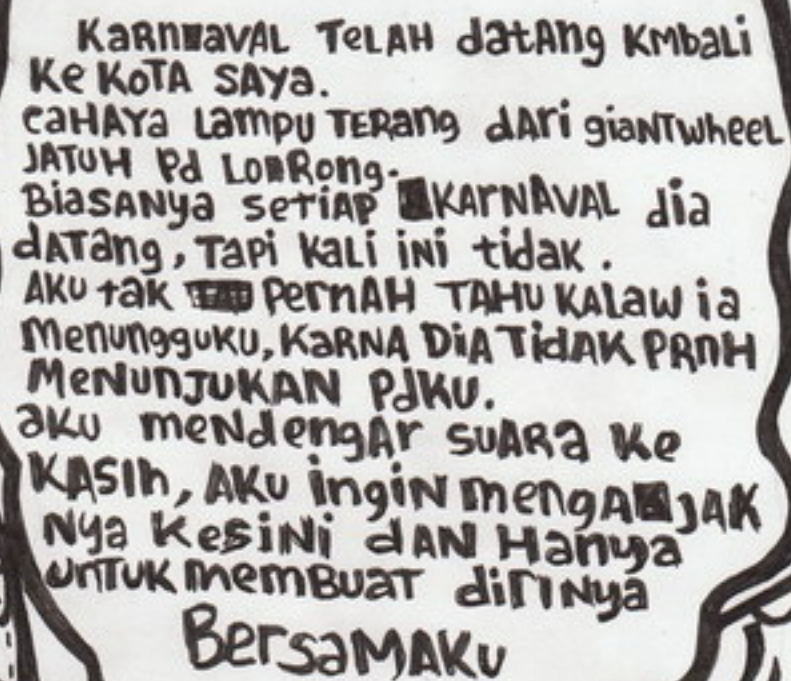 KARNAVAL TELAH dATAng KMbali
Ke KOTA SAYa.
CAHAYa LAMPU TERang dARi giaNTwheeL
JATUH Pd LORong.
BiaSANya SeTiAP KARNAVAL dia
dATang, TaPi KaLi iNi tidak.
AKU tak PernAH TAHU KALAW ia
Menungguku, KaRNA DiA TidAK PRnH
MeNUNJUKAN PdKU.
aKU meNdengAr SUARa Ke
KASIh, AKU ingiN mengAJAK
Nya KeSiNi dAN HaNya
UNTUK memBUAT diriNya
BerSaMAKU